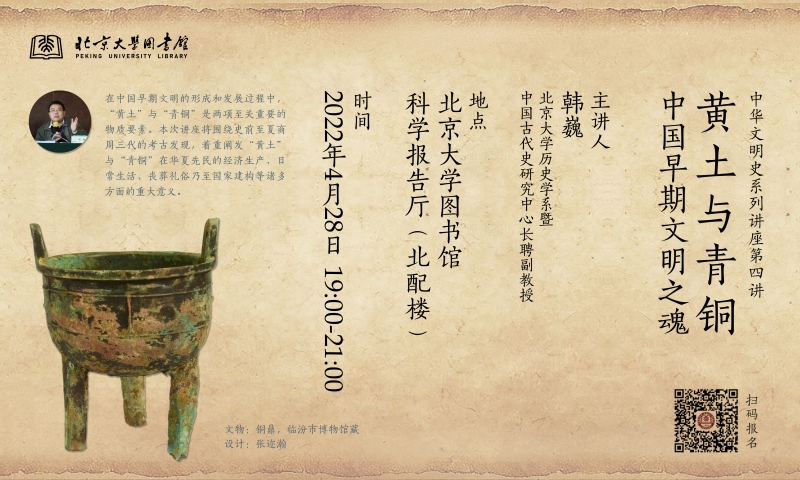 北京大学图书馆
PEKING UNIVERSITY LIBRARY
中华文明史系列讲座第四讲
黄土与青铜
中国早期文明之魂
主讲人
韩巍
北京大学历史学系暨
中国古代史研究中心长聘副教授
地点
北京大学图书馆
科学报告厅（北配楼）
时间
2022年4月28日 19:00-21:00
在中国早期文明的形成和发展过程中，
“黄土”与“青铜”是两项至关重要的
物质要素。本次讲座将围绕史前至夏商
周三代的考古发现，着重阐发“黄土”
与“青铜”在华夏先民的经济生产、日
常生活、丧葬礼俗乃至国家建构等诸多
方面的重大意义。
文物：铜鼎，临汾市博物馆藏
设计：张迩瀚
扫码报名